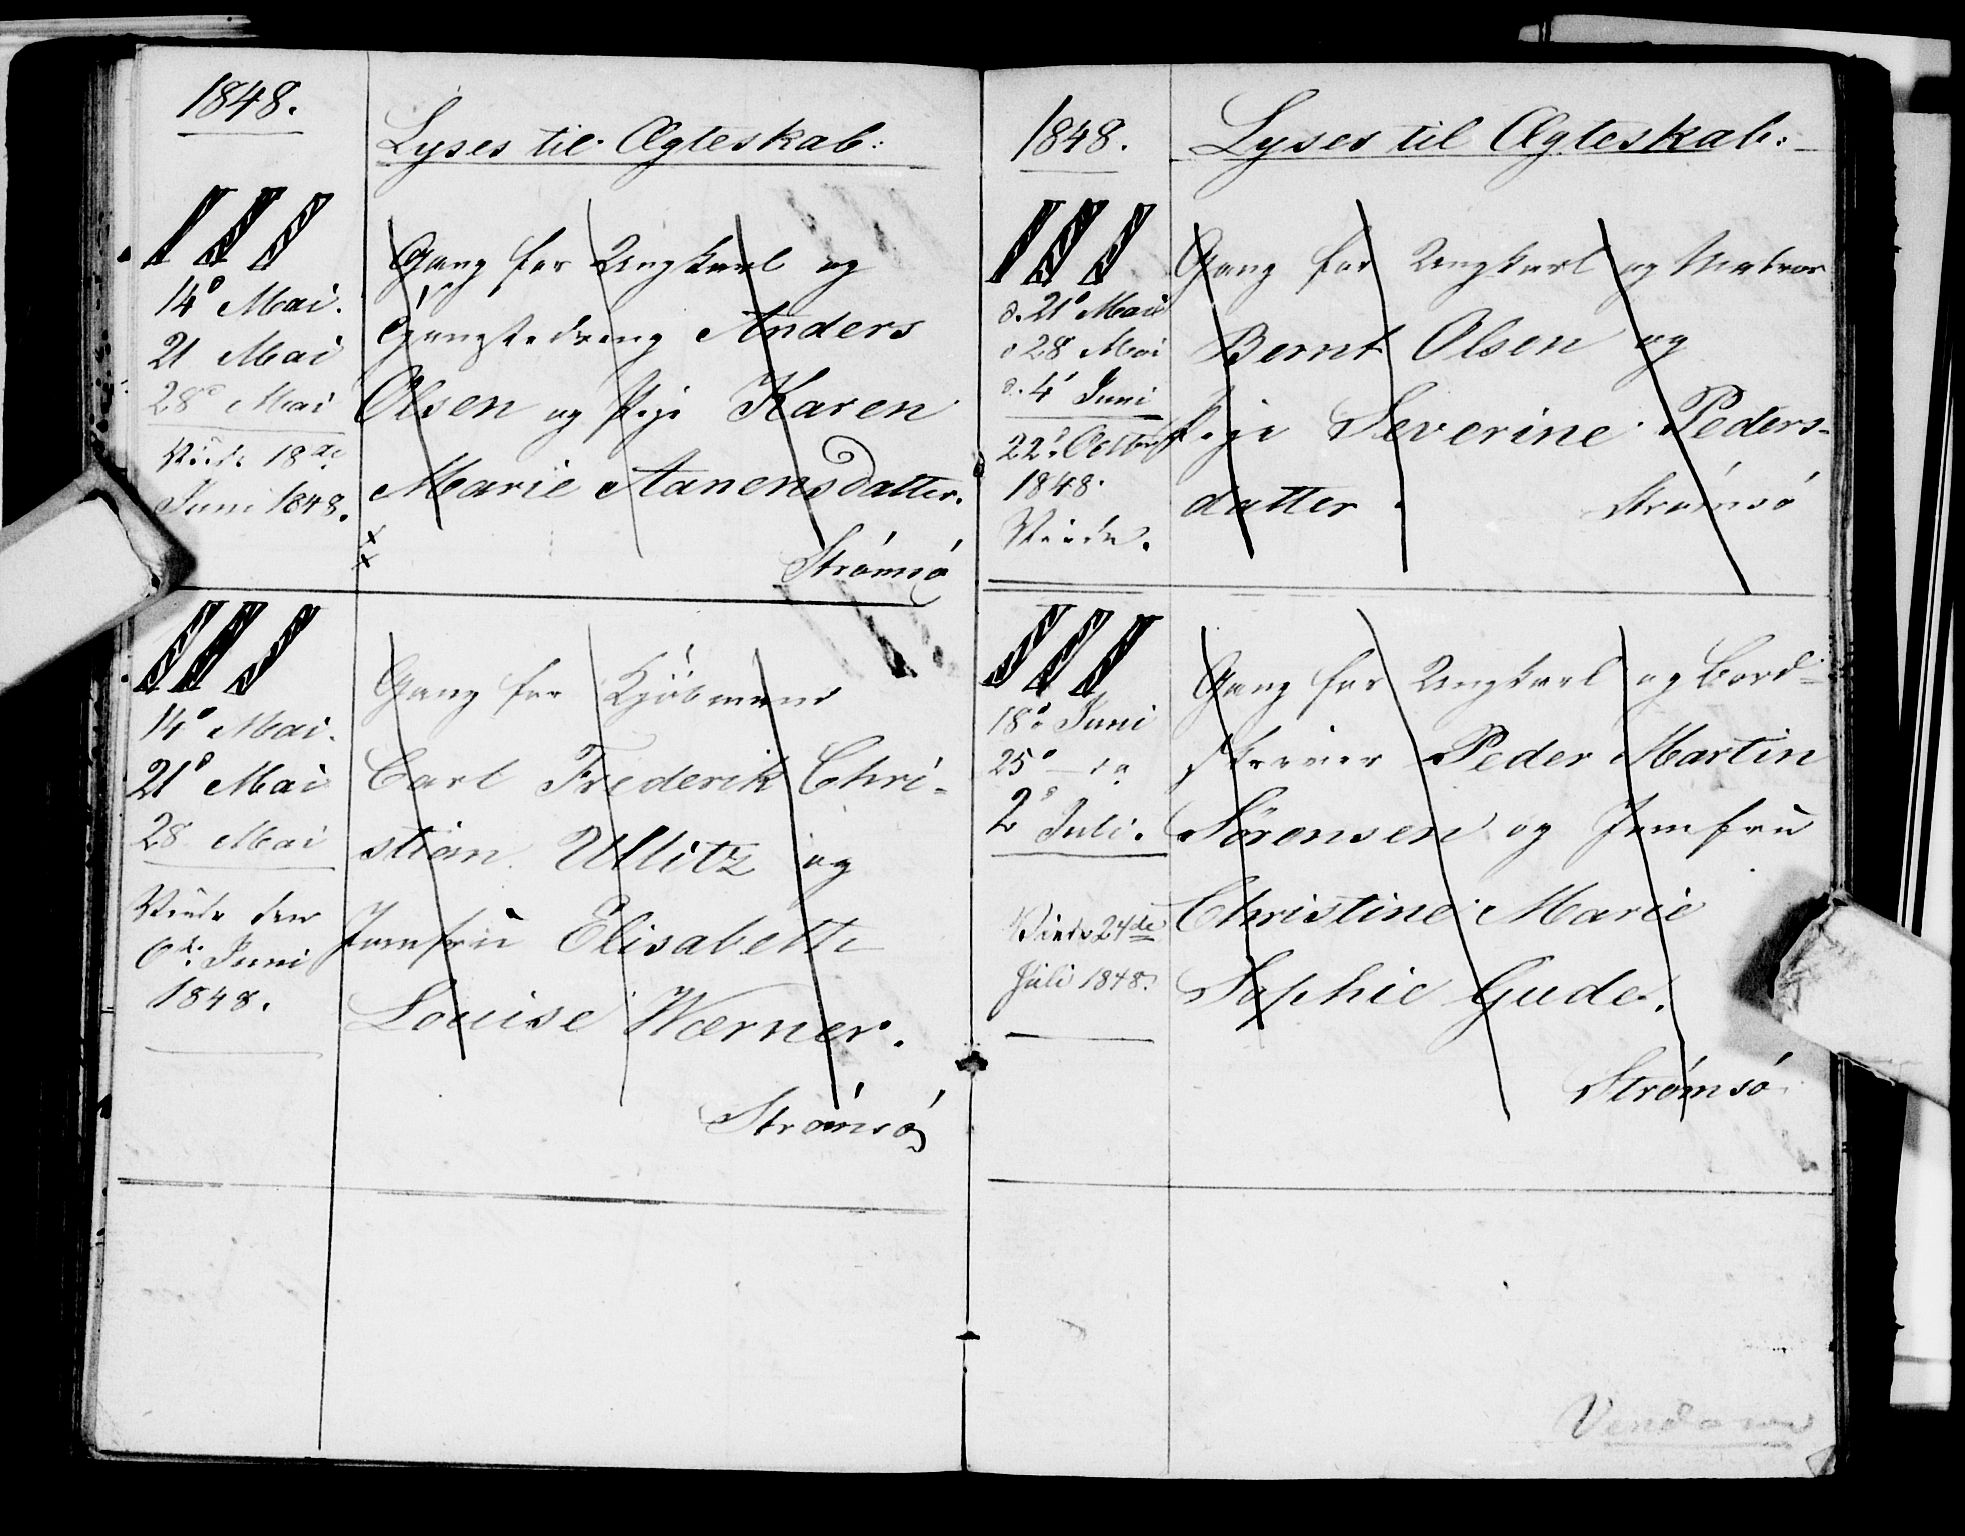 1848.
Lyses til Ægteskab:
I I I
14d Mai.
21 Mai
28d Mai
Viede 18de
Juni 1848.
Gang for Ungkarl og
Anders
Olsen og Pige Karen
Marie Aanensdatter.
Strømsø
I I I
14d Mai.
21d Mai
28 Mai
Viede den
6de Juni
1848.
Gang for Kjöbmand
Carl Frederik Chri-
stian Ullitz og
Jomfru Elisabeth
Louise Wærner.
Strømsø
1848.
Lyses til Ægteskab:
I I I
d. 21d Mai
d 28 Mai
d. 4d Juni
22d Octbr
1848.
Viede.
Gang for Ungkarl og Matros
Bernt Olsen og
Pige Severine Peders-
datter.
Strømsø
I I I
18d Juni
25d — do
2d Juli.
Viede 24de
Juli 1848.
Gang for Ungkarl og Bord-
skriver Peder Martin
Sørensen og Jomfru
Christine Marie
Sophie Gude.
Strømsø